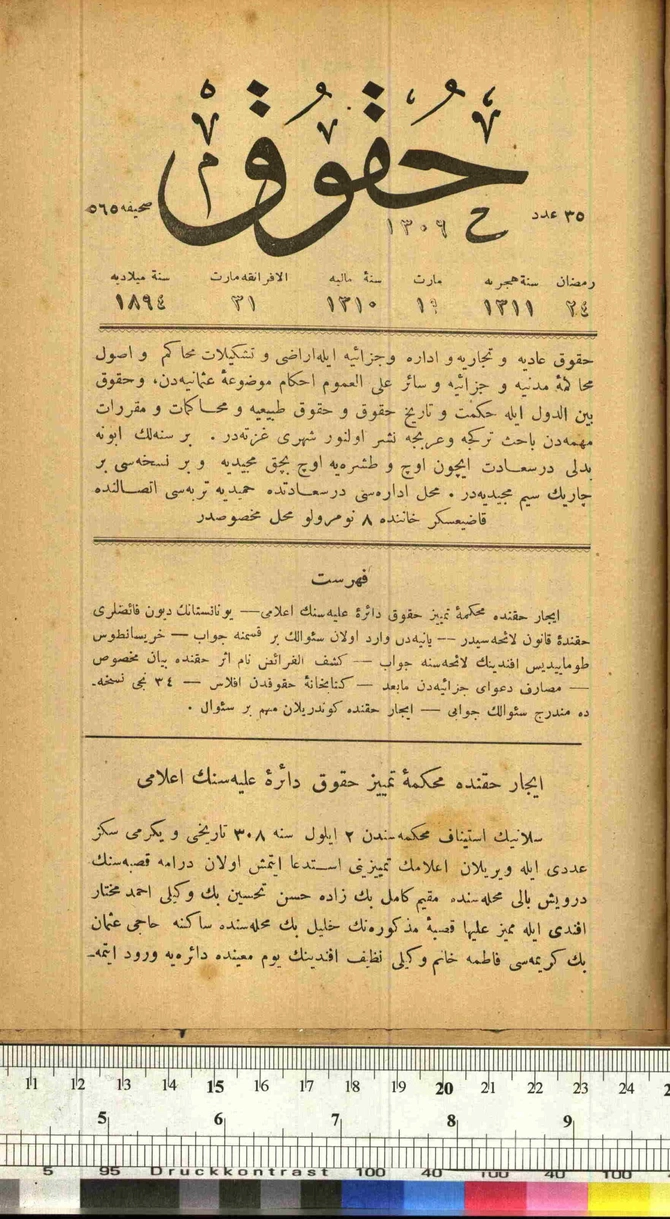 حقوق
٣٥ عدد
ح ١٣٠٦
صحيفه ٥٦٥
رمضان سنۀ هجريه مارت سنۀ ماليه الافرانقه مارت سنۀ ميلاديه
٢٤ ١٣١١ ١٩ ١٣١٠ ٣١ ١٨٩٤
حقوق عاديه و تجاريه و اداره وجزائيه ايله اراضى و تشكيلات محاكم و اصول
محاكمۀ مدنيه و جزائيه و سائر على العموم احكام موضوعۀ عثمانيه‌دن، وحقوق
بين الدول ايله حكمت و تاريخ حقوق و حقوق طبيعيه و محاكمات و مقررات
مهمه‌دن باحث تركجه وعربجه نشر اولنور شهرى غزته‌در . بر سنه‌لك ابونه
بدلى درسعادت ايچون اوچ و طشره‌يه اوچ بچق مجيديه و بر نسخه‌سى بر
چاريك سيم مجيديه‌در . محل اداره‌سى درسعادتده حميديه تربه‌سى اتصالنده
قاضيعسكر خاننده ٨ نومرولو محل مخصوصدر
فهرست
ايجار حقنده محكمۀ تمييز حقوق دائرۀ عليه‌سنك اعلامى — يونانستانك ديون فائضلرى
حقندۀ قانون لائحه‌سيدر — يانيه‌دن وارد اولان سئوالك بر قسمنه جواب — خريسانطوس
طوماييديس افندينك لائحه‌سنه جواب — كشف الفرائض نام اثر حقنده بيان مخصوص
— مصارف دعواى جزائيه‌دن مابعد — كتابخانۀ حقوقدن افلاس — ٣٤ نجى نسخه‌ـ
ده مندرج سئوالك جوابى — ايجار حقنده كوندريلان مهم بر سئوال .
ايجار حقنده محكمۀ تمييز حقوق دائرۀ عليه‌سنك اعلامى
سلانيك استيناف محكمه‌سندن ٢ ايلول سنه ٣٠٨ تاريخى و يكرمى سكز
عددى ايله ويريلان اعلامك تمييزينى استدعا ايتمش اولان درامه قصبه‌سنك
درويش بالى محله‌سنده مقيم كامل بك زاده حسن تحسين بك وكيلى احمد مختار
افندى ايله مميز عليها قصبۀ مذكوره‌نك خليل بك محله‌سنده ساكنه حاجى عثمان
بك كريمه‌سى فاطمه خانم وكيلى نظيف افندينك يوم معينده دائره‌يه ورود ايتمه‌ـ
11 12 13 14 15 16 17 18 19 20 21 22 23 24
5 6 7 8 9
5 95 Druckkontrast 100 40 100 40 100